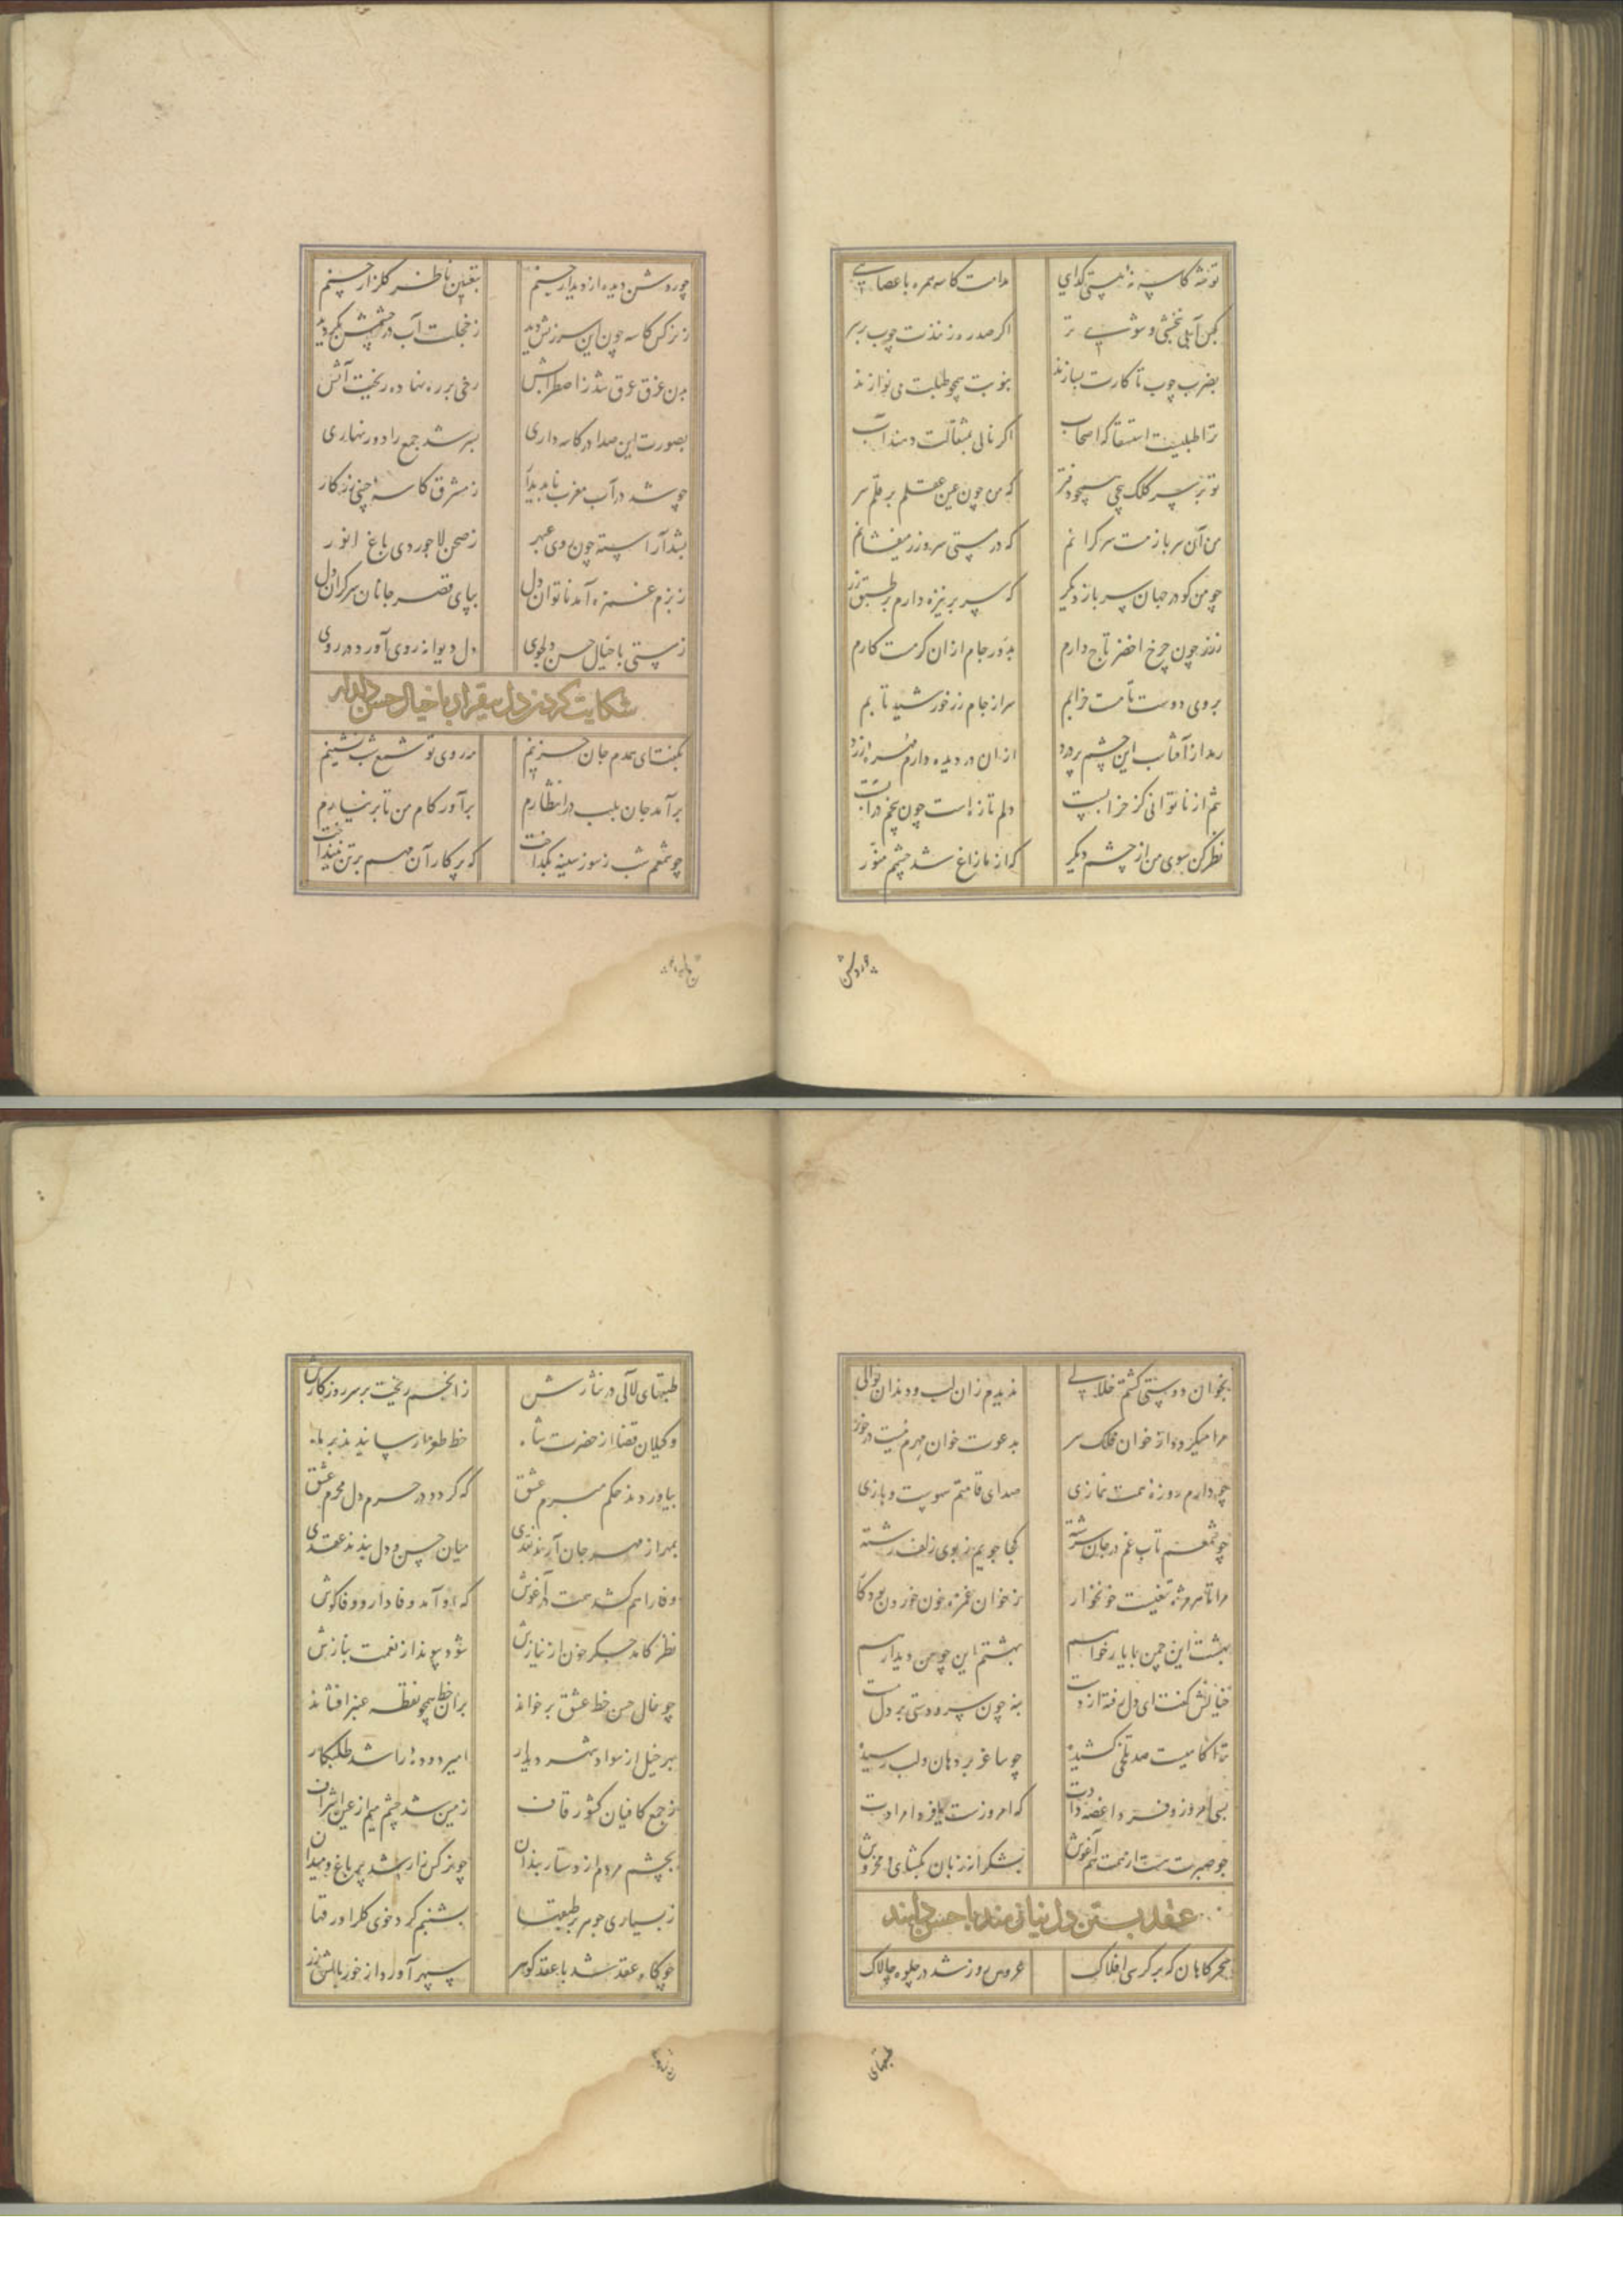 تو خه کاسه نه ایستی گدای مدامت کاسه همره با عصایی
مکن آبی بخشی و شوی تر اگر صد روز نندت چوب بر سر
بضرب چوب تا کارت بسازند بنوبت همچو طبلت می نوازند
ترا طبلیت استسقا که اصحاب اگر نالی بمثقالت دهند آب
تو بر سر کلک پیچی همچو دفتر که من چون عین عقلم بر قلم سر
من آن سرباز مست سرگرانم که در مستی سر و زر میفشانم
چو من کو در جهان سرباز دیگر که سر بر نیزه دارم بر طبق زر
ز زر چون چرخ اخضر تاج دارم بدور جام ازان گرمست کارم
بروی دوست تا مست خرابم سر از جام زر خورشید تابم
رمد از آفتاب این چشم پر درد ازان در دیده دارم زرد
نم از ناتوانی کز خرابیست دلم تازه است چون تخم در آبست
نظر کن سوی من از چشم دیگر که از مازاغ شد چشم منور
چو روشن
چو روشن دیده از دیدار چینم بتعیین ناظر گلزار چینم
ز نرگس کاسه چون این سرزنش دید ز خجلت آب در چشمش بگردید
من غرق عرق شد ز اضطرابش رخی بر ره نهاده ریخت آتش
بصورت این صدا در کاسه داری بسر شد جمع را دور نهاری
چو شد در آب مغرب ناپدیدار ز مشرق کاسه چینی زرکار
بشد آراسته چون روی عبهر ز صحن لاجوردی باغ انور
ز بزم غمزه آمد ناتوان دل بپای قصر جانان سرگران دل
ز مستی با خیال حسن دلجوی دل دیوانه روی آورد در روی
شکایت کردن دل بیقرار با خیال حسن دلدار
بگفت ای همدم جان حزینم مه روی تو شمع شب نشینم
بر آمد جان بلب در انتظارم برآور کام من تا بر نیارم
چو شمعم شب ز سوز سینه بگداخت که بر کار آن مهم پرتو نینداخت
بخوان دوستی گشتم خلالی ندیدم زان لب و دندان نوالی
مرا میگیرد از خوان فلک سر بدعوت خوان مهرم نیست در خور
چو دارم روزه همت نمازی صدای قامتم سویست و بازی
چو شمعم تاب غم در جان سرشته کجا جویم ز بوی زلف رشته
مرا تا هر مژه تیغیست خونخوار ز خوان غمزه خون خوردن بود کار
بهشت این چمن با یار خواهم بهشتم این چو من دیدار خواهم
خیالش گفت ای دل رفته از دست بنه چون سرو دستی بر دل مست
ترا کامیست صد تلخی کشیده چو ساغر بر دهان و لب رسیده
بسی امروز و فردا غصه دادت که امروزست فردا مرادت
چو صبرت هست از همت هم آغوش بشکر از زبان بگشای و مخروش
عقد بستن دل نیازمند با حسن دلبند
سحرگاهان که بر کرسی افلاک عروس روز شد در جلوه چالاک
طبقهای
طبقهای لآلی در نثارش ز انجم ریخت بر سر روزگارش
وکیلان قضا از حضرت شاه خط طومار سانیدند بر ماه
بیاوردند حکم مبرم عشق که گردد در حرم دل محرم عشق
بمهر از مهر جان آرند نقدی میان حسن و دل بندند عقدی
وفا را هم کشد همت در آغوش که او آمد وفادار و وفا کوش
نظر کامد جگر خون از نیازش شود پیوند از نعمت بنازش
چو خال حسن خط عشق برخواند بران خط همچو نقطه عنبر افشاند
سر خیل از سواد شهر دیدار امیر دوده را شد طلبکار
ز جمع کافیان کشور قاف زمین شد چشم میم از عین اشراف
بچشم مردم از دستاربندان چو نرگس زار شد پر باغ و میدان
ز بسیاری جوهر بر طبقها بشبنم کرد خوی گل را ورقها
چو گاو عقد شد با عقد گوهر سپهر آورد از خور بالش زر